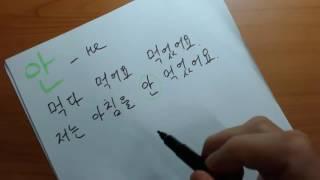 안 - не
먹다 먹어요 먹었어요
저는 아침을 안 먹었어요.